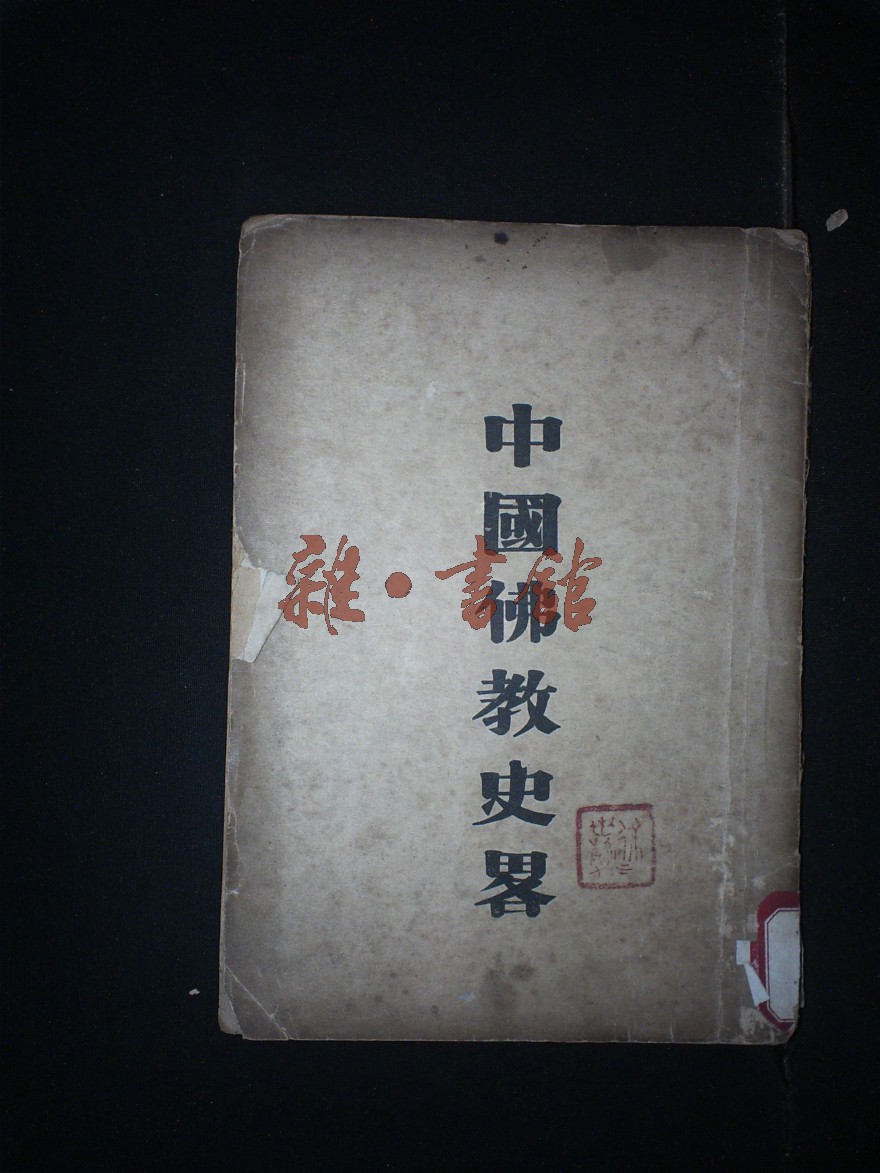 中國佛教史畧
雜·書館